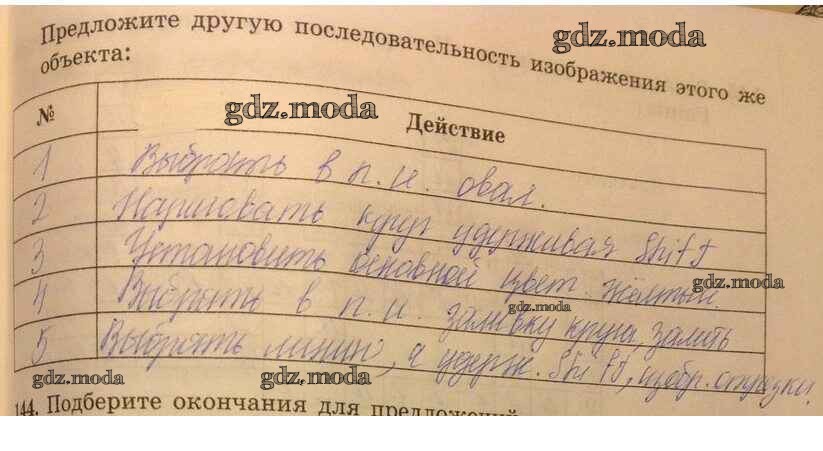 Предложите другую последовательность изображения этого же
объекта:
gdz.moda
gdz.moda
№ Действие
1 Выбрать в п. и. овал.
2 Нарисовать круг удерживая Shift
3 Установить основной цвет жёлтый.
gdz.moda
4 Выбрать в п. и. заливку круга, залить
gdz.moda
5 Выбрать линию, а удерж. Shift, изобр. отрезки.
gdz.moda
gdz.moda
144. Подберите окончания для предложений